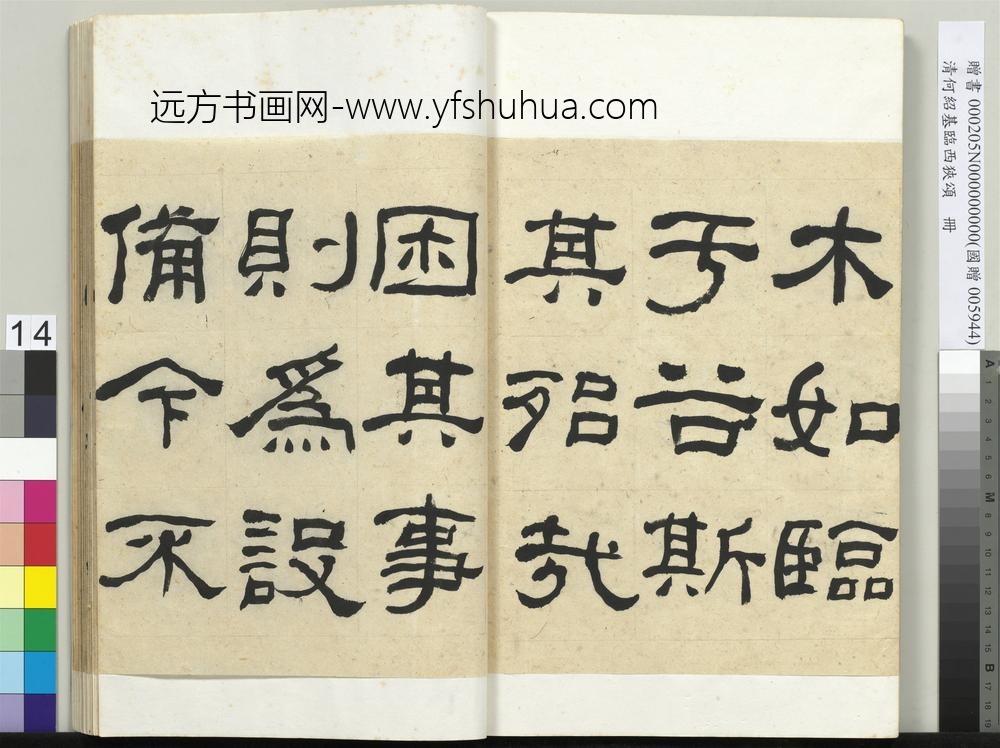 远方书画网-www.yfshuhua.com
木如臨
于谷斯
其殆哉
困其事
則爲設
備今不
贈書 000205N000000000(國贈 005944)
清何紹基臨西狹頌 冊
14
A 1 2 3 4 5 6 M 8 9 10 11 12 13 14 15 B 17 18 19